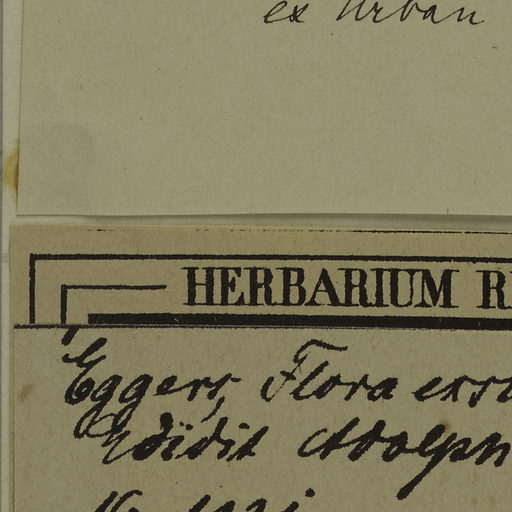 ex Urban
HERBARIUM R
Eggers, Flora exs
Edidit Adolph